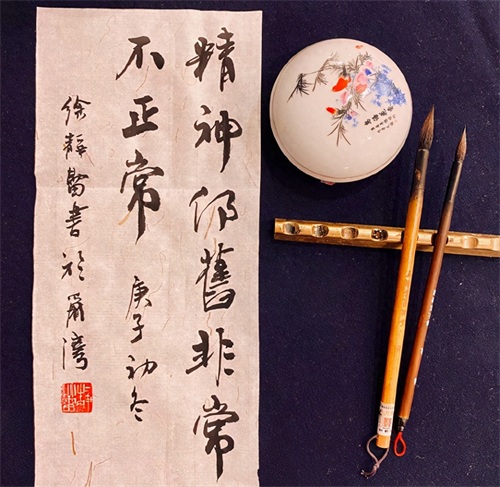 精神仍舊非常
不正常
庚子初冬
徐靜蕾書於